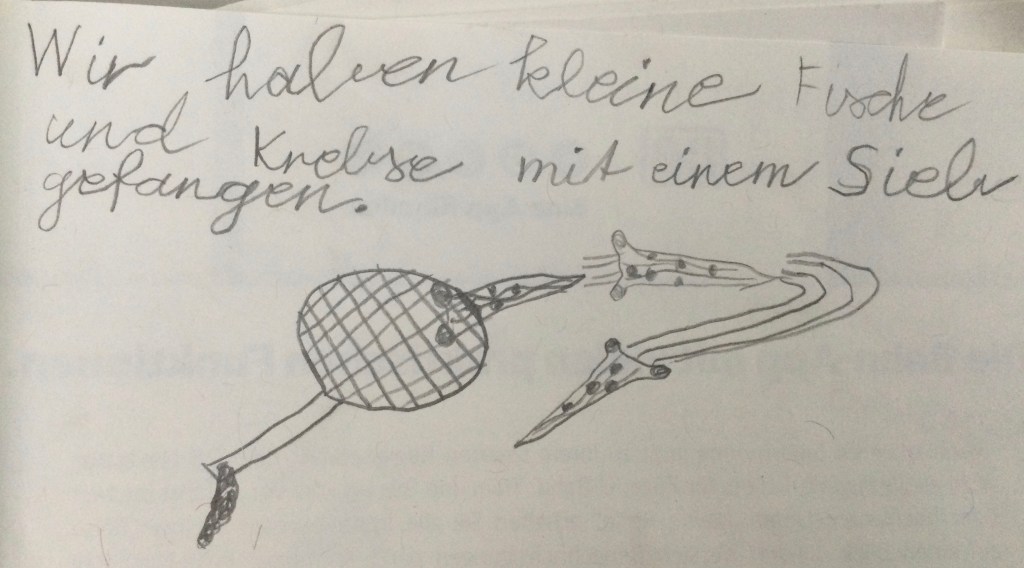 Wir haben kleine Fische
und Krebse mit einem Sieb
gefangen.